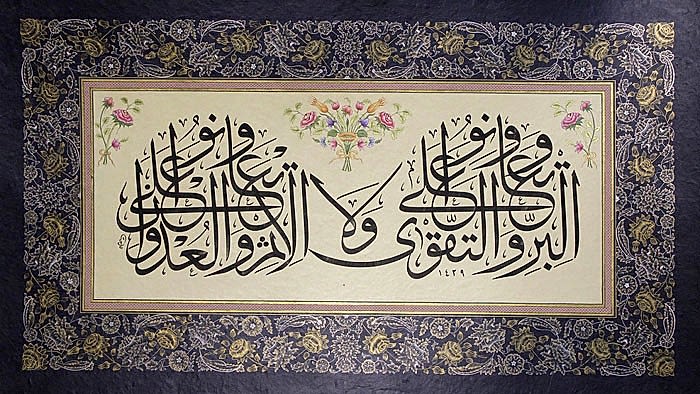 وتعاونوا على البر والتقوى ولا تعاونوا على الإثم والعدوان
١٤٣٩